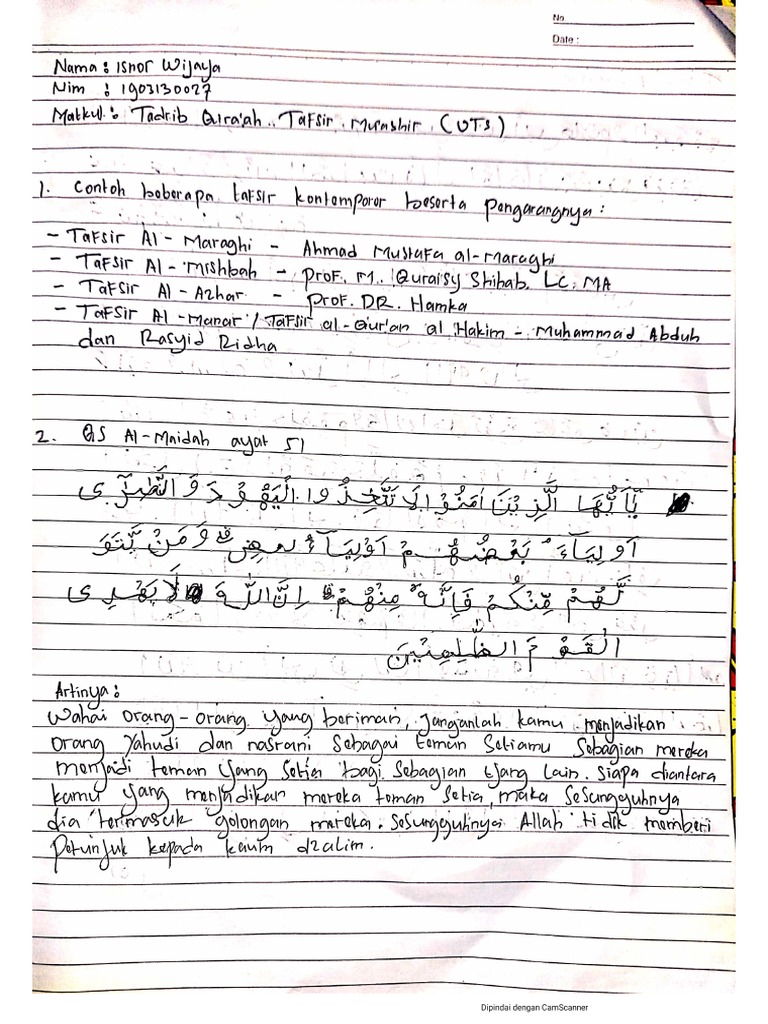 No
Date :
Nama : Isnor Wijaya
Nim : 1903130027
Matkul : Tadrib Qira'ah Tafsir Mu'ashir (UTS)
1. Contoh beberapa tafsir kontemporer beserta pengarangnya :
- Tafsir Al - Maraghi - Ahmad Mustafa al-Maraghi
- Tafsir Al - Mishbah - Prof. M. Quraisy Shihab, LC, MA
- Tafsir Al - Azhar - Prof. DR. Hamka
- Tafsir Al - Manar / Tafsir al-Qur'an al Hakim - Muhammad Abduh
dan Rasyid Ridha
2. QS Al-Maidah ayat 51
يٰٓاَيُّهَا الَّذِيْنَ اٰمَنُوْا لَا تَتَّخِذُوا الْيَهُوْدَ وَالنَّصٰرٰٓى
اَوْلِيَاۤءَ ۘ بَعْضُهُمْ اَوْلِيَاۤءُ بَعْضٍ ۗ وَمَنْ يَّتَوَ
لَّهُمْ مِّنْكُمْ فَاِنَّهٗ مِنْهُمْ ۗ اِنَّ اللّٰهَ لَا يَهْدِى
الْقَوْمَ الظّٰلِمِيْنَ
Artinya :
Wahai orang-orang yang beriman, janganlah kamu menjadikan
orang Yahudi dan nasrani sebagai teman setiamu sebagian mereka
menjadi teman yang setia bagi sebagian yang lain. siapa diantara
kamu yang menjadikan mereka teman setia, maka sesungguhnya
dia termasuk golongan mereka. sesungguhnya Allah tidik memberi
petunjuk kepada kaum dzalim.
Dipindai dengan CamScanner